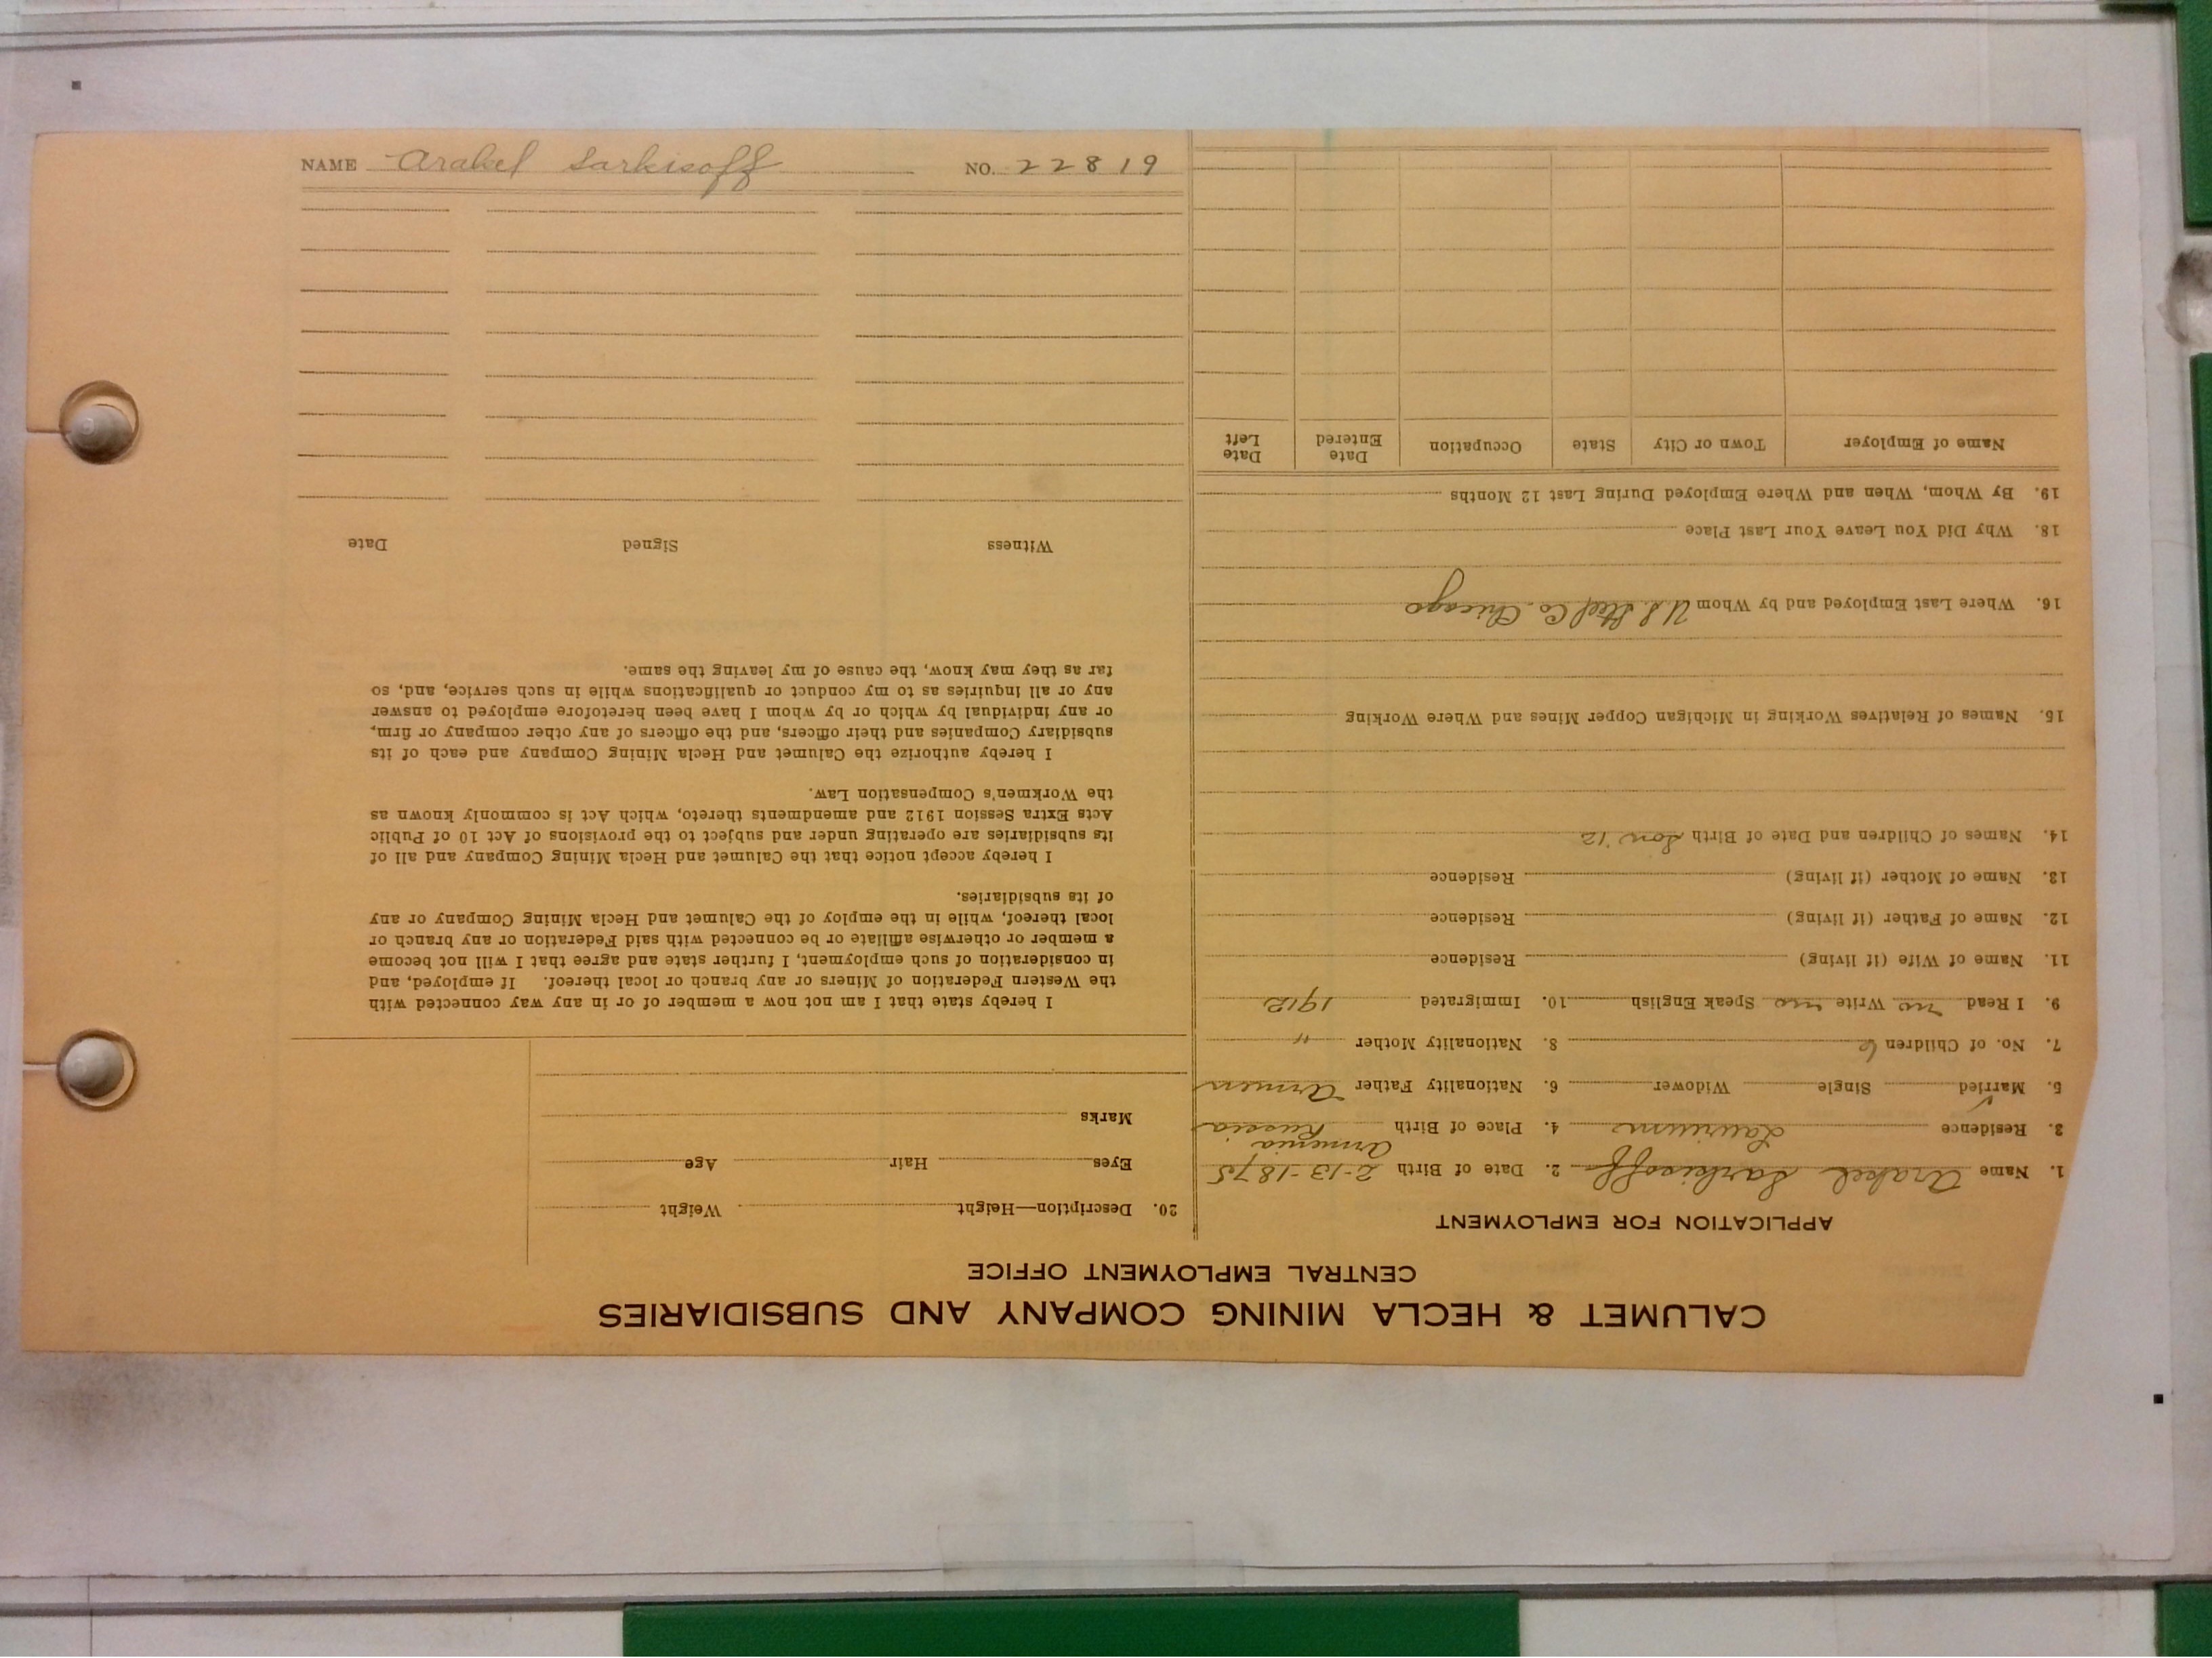 NAME Arakel Sarkisoff NO. 22819
CALUMET & HECLA MINING COMPANY AND SUBSIDIARIES
CENTRAL EMPLOYMENT OFFICE
APPLICATION FOR EMPLOYMENT
1. Name Arakel Sarkisoff 2. Date of Birth 2-13-1875
Armenia
3. Residence Laurium 4. Place of Birth Russia
5. Married ✓ Single Widower 6. Nationality Father Armen
7. No. of Children 6 8. Nationality Mother "
9. I Read no Write no Speak English 10. Immigrated 1912
11. Name of Wife (if living) Residence
12. Name of Father (if living) Residence
13. Name of Mother (if living) Residence
14. Names of Children and Date of Birth Son '12
15. Names of Relatives Working in Michigan Copper Mines and Where Working
16. Where Last Employed and by Whom U S Steel Co. Chicago
18. Why Did You Leave Your Last Place
19. By Whom, When and Where Employed During Last 12 Months
Name of Employer Town or City State Occupation Date Entered Date Left
20. Description—Height Weight
Eyes Hair Age
Marks
I hereby state that I am not now a member of or in any way connected with
the Western Federation of Miners or any branch or local thereof. If employed, and
in consideration of such employment, I further state and agree that I will not become
a member or otherwise affiliate or be connected with said Federation or any branch or
local thereof, while in the employ of the Calumet and Hecla Mining Company or any
of its subsidiaries.
I hereby accept notice that the Calumet and Hecla Mining Company and all of
its subsidiaries are operating under and subject to the provisions of Act 10 of Public
Acts Extra Session 1912 and amendments thereto, which Act is commonly known as
the Workmen's Compensation Law.
I hereby authorize the Calumet and Hecla Mining Company and each of its
subsidiary Companies and their officers, and the officers of any other company or firm,
or any individual by which or by whom I have been heretofore employed to answer
any or all inquiries as to my conduct or qualifications while in such service, and, so
far as they may know, the cause of my leaving the same.
Witness Signed Date